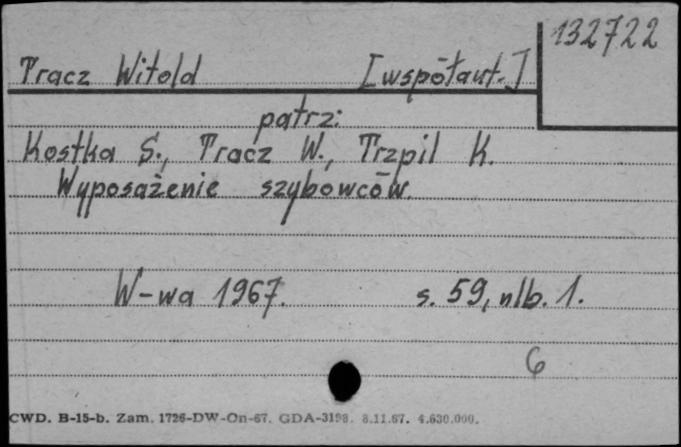 132722
Tracz Witold [współaut.]
patrz:
Kostka S., Tracz W., Trzpil K.
Wyposażenie szybowców.
W-wa 1967. s. 59, nlb. 1.
6
CWD. B-15-b. Zam. 1726-DW-On-67. GDA-3198. 8.11.67. 4.630.000.